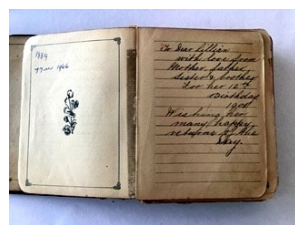 To Dear Lillian
with love from
Mother, father,
sister & brother
for her 12th
Birthday
Wishing her
many happy
returns of the
Day.